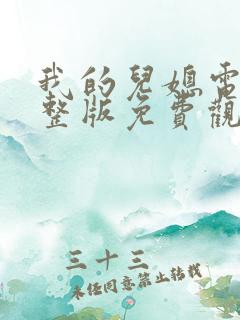 我的兒媳電
整版免費觀
三十三
未经同意禁止转载